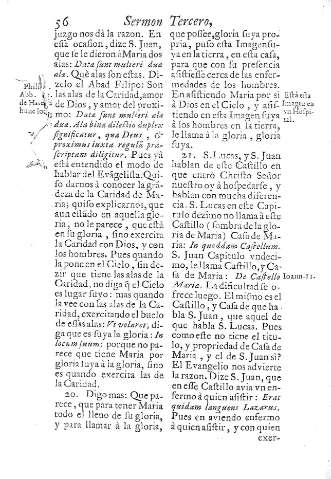 56 Sermon Tercero,
juzgo nos dá la razon. En
esta ocasion, dize S. Juan,
que se le dieron à Maria dos
alas: Data sunt mulieri duæ
alæ. Què alas son estas. Dizelo
el Abad Filipo: Son
las alas de la Caridad, amor
de Dios, y amor del proximo:
Datæ sunt mulieri alæ
duæ. Ala bina dilectio duplex
significatur, qua Deus, &
proximus iuxta regulā præscriptam
diligitur. Pues yà
està entendido el modo de
hablar del Evãgelista. Quiso
darnos à conocer la grãdeza
de la Caridad de Maria;
quiso explicarnos, que
aun estãdo en aquella gloria,
no le parece, que està
en su gloria, sino exercita
la Caridad con Dios, y con
los hombres. Pues quando
la pone en el Cielo, sin dezir
que tiene las alas de la
Caridad, no diga q̃ el Cielo
es lugar suyo: mas quando
la vee con las alas de la Caridad,
exercitando el buelo
de essas alas: Ut volaret, diga
que es suya la gloria: In
locum suum: porque no parece
que tiene Maria por
gloria suya à la gloria, sino
es quando exercita las de
la Caridad.
20. Digo mas: Que parece,
que para tener Maria
todo el lleno de su gloria,
y para llamar à la gloria,
Phili
Abb.
de Haru
hunc loc.
que possee, gloria suya propria,
puso esta Imagen suya
en la tierra, en esta casa,
para que con su presencia
assistiesse cerca de las enfermedades
de los hombres.
En assistiendo Maria por si
à Dios en el Cielo, y assistiendo
en esta Imagen suya
à los hombres en la tierra,
le llama à la gloria, gloria
suya.
21. S. Lucas, y S. Juan
hablan de este Castillo en
que entrò Christo Señor
nuestro yv à hospedarse, y
hablan con mucha diferencia.
S. Lucas en este Capitulo
dezimo no llama à este
Castillo (sombra de la gloria
de Maria) Casa de Maria:
In quoddam Castellum.
S. Juan Capitulo vndecimo,
le llama Castillo, y Casa
de Maria: De Castello
Mariæ. La dificultad se ofrece
luego. El mismo es el
Castillo, y Casa de que habla
S. Juan, que aquel de
que habla S. Lucas. Pues
como este no tiene el titulo,
y propriedad de Casa de
Maria, y el de S. Juan si?
El Evangelio nos advierte
la razon. Dize S. Juan, que
en esse Castillo avia vn enfermo
à quien assistir: Erat
quidam languens Lazarus.
Pues en aviendo enfermo
à quien assistir, y con quien
exer-
Està esta
Imagen en
vn Hospital.
Ioann. 11.